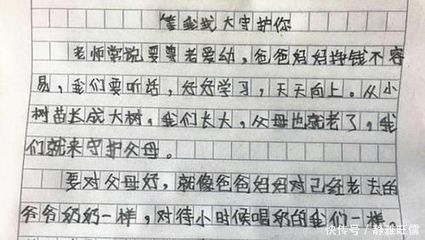 等我长大守护你
老师常说要尊老爱幼，爸爸妈妈挣钱不容
易，我们要听话，好好学习，天天向上。从小
树苗长成大树，我们长大，父母也就老了，我
们就来守护父母。
要对父母好，就像爸爸妈妈对已经老去的
爷爷奶奶一样，对待小时候喝奶的我们一样。
快传号 / 静雅旺儒